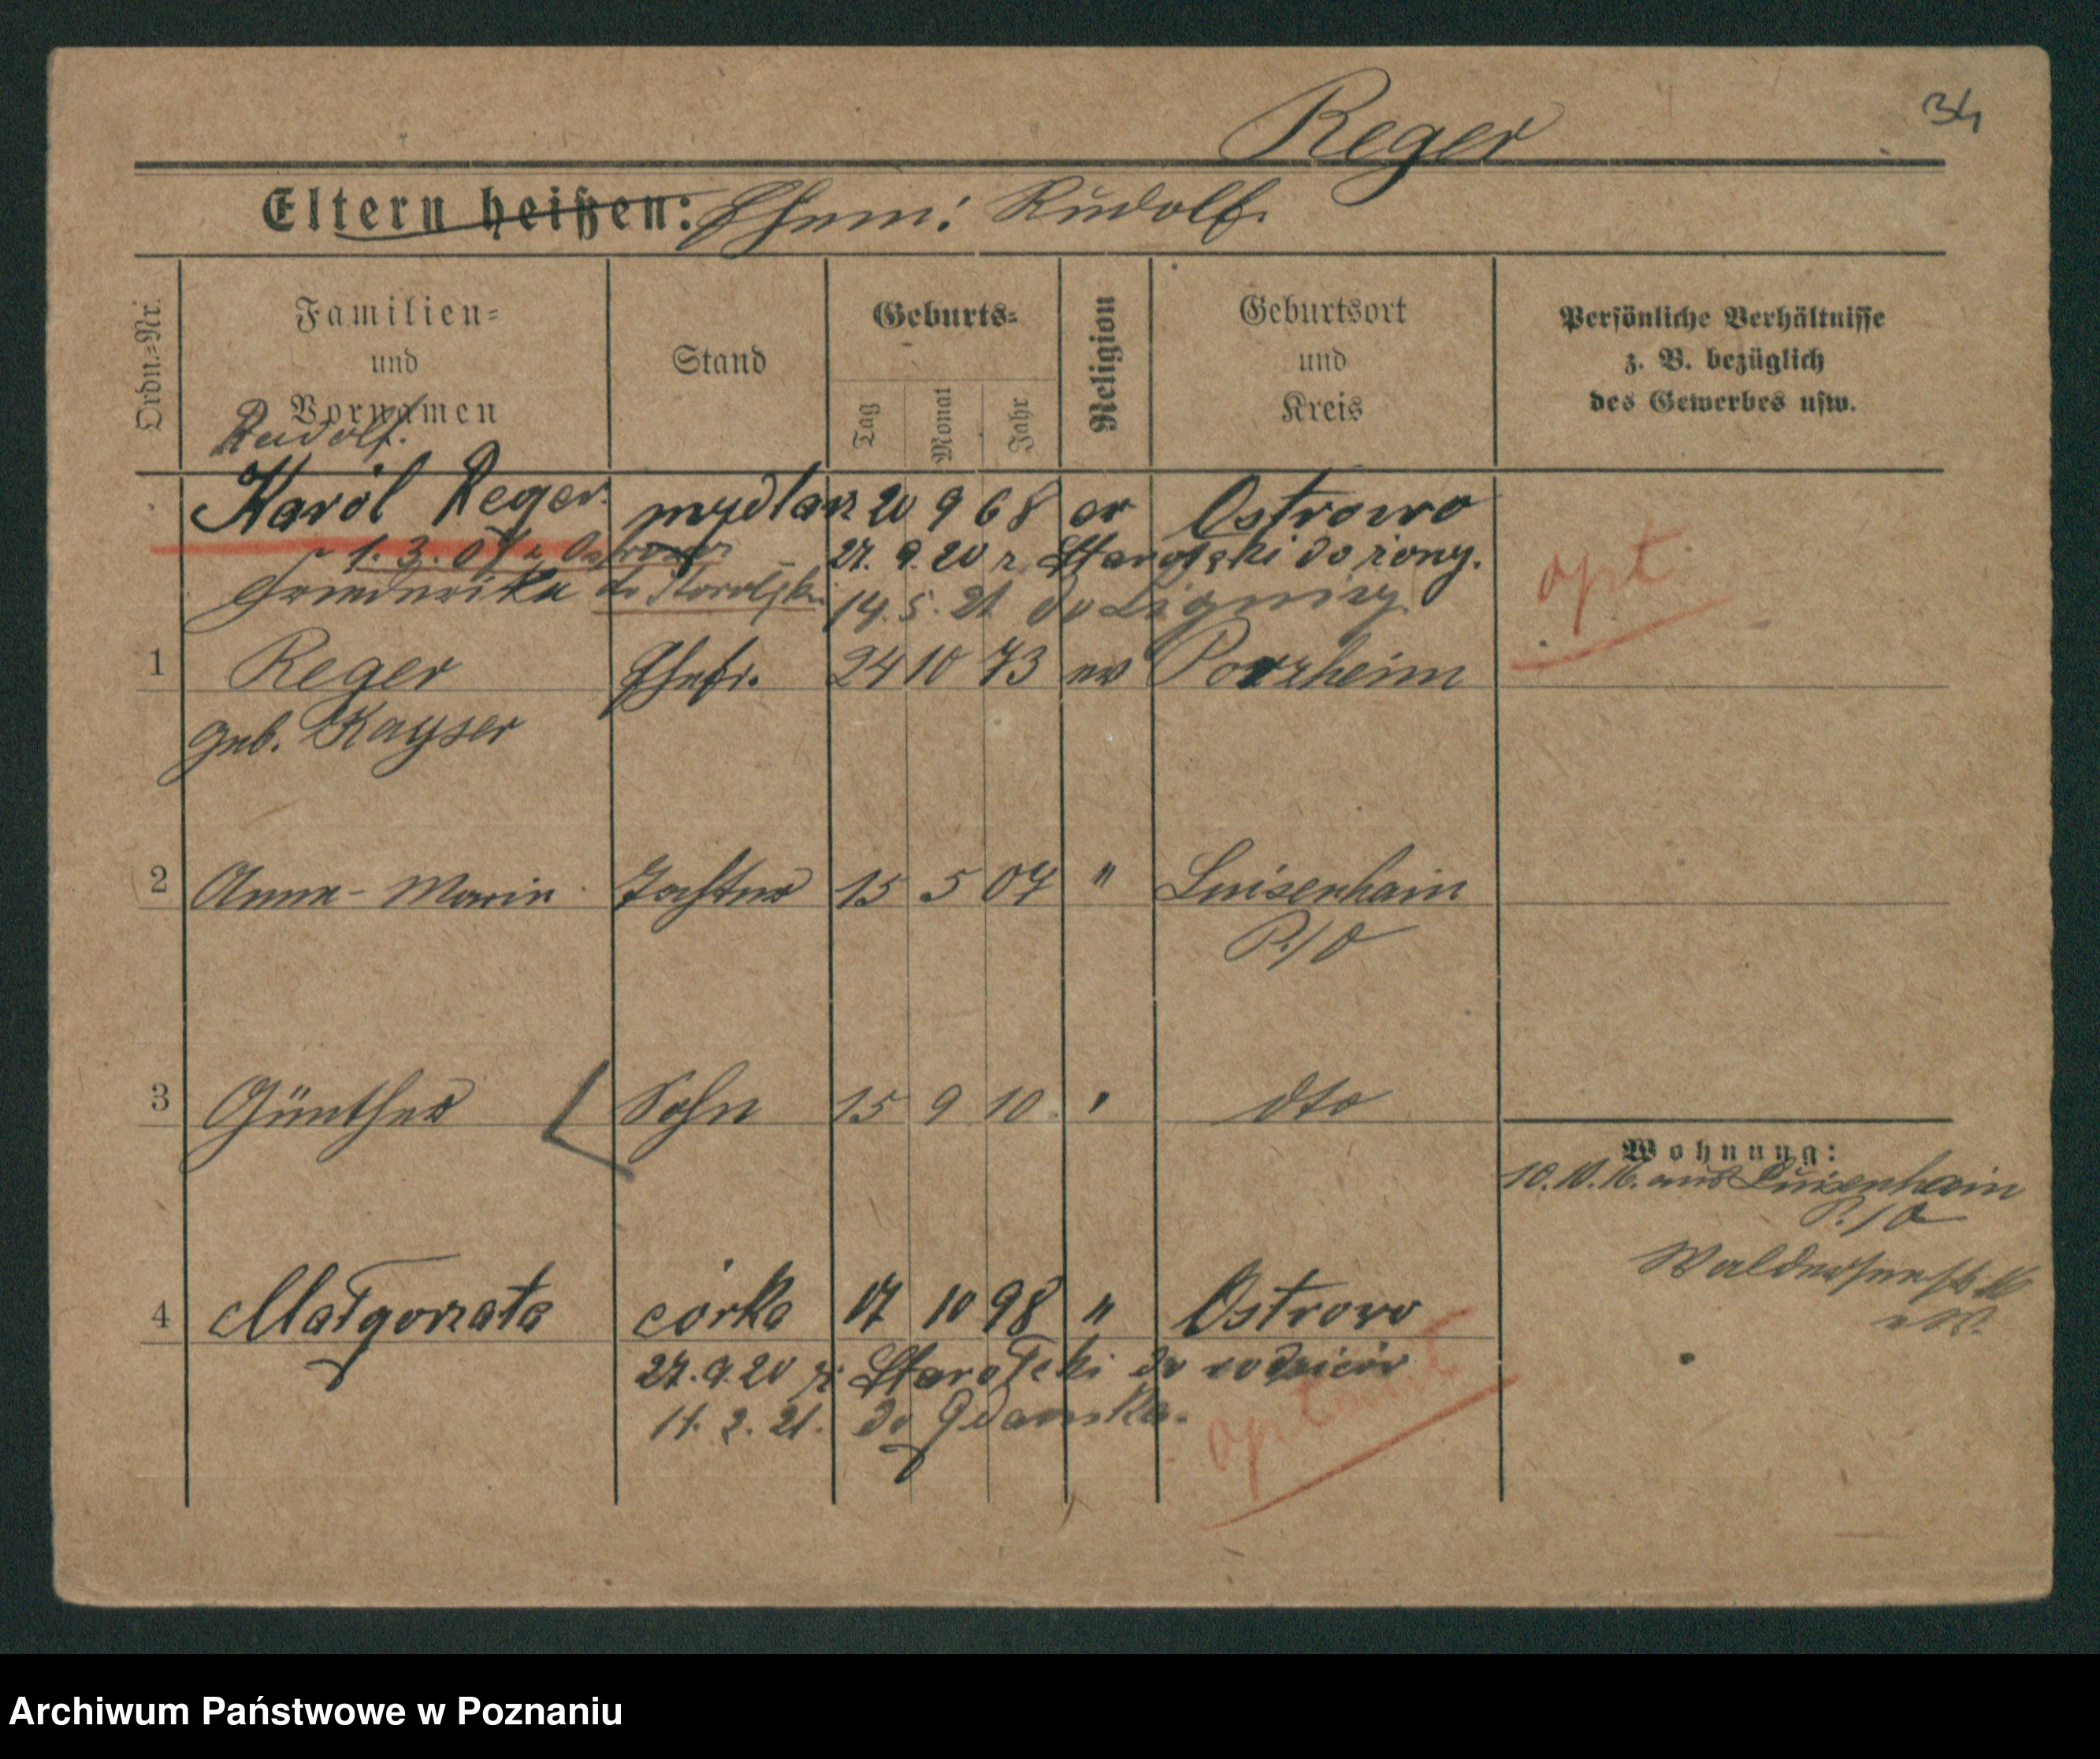 Reger
34
Eltern heißen: Ehem: Rudolf.
Ordn.-Nr.
Familien-
und
Vornamen
Stand
Geburts-
Tag
Monat
Jahr
Religion
Geburtsort
und
Kreis
Persönliche Verhältnisse
z. B. bezüglich
des Gewerbes usw.
Rudolf.
Karol Reger mydlarz 20 9 68 ew Ostrowo
1. 3. 07 z Ostrowa 27. 9. 20 r. Starołęki do żony.
Friederike do Starołęki 14. 5. 21 do Lignicy.
opt
1 Reger Ehefr. 24 10 73 ev Porzheim
geb. Kayser
2 Anna-Marie Tochter 15 5 07 " Luisenhain
P./O
3 Günther Sohn 15 9 10 " dto
Wohnung:
10. 10. 16. aus Luisenhain
P./O
4 Małgorzata córka 17 10 98 " Ostrowo
27. 9. 20 z Starołęki do rodziców
11. 2. 21. do Gdańska.
Archiwum Państwowe w Poznaniu